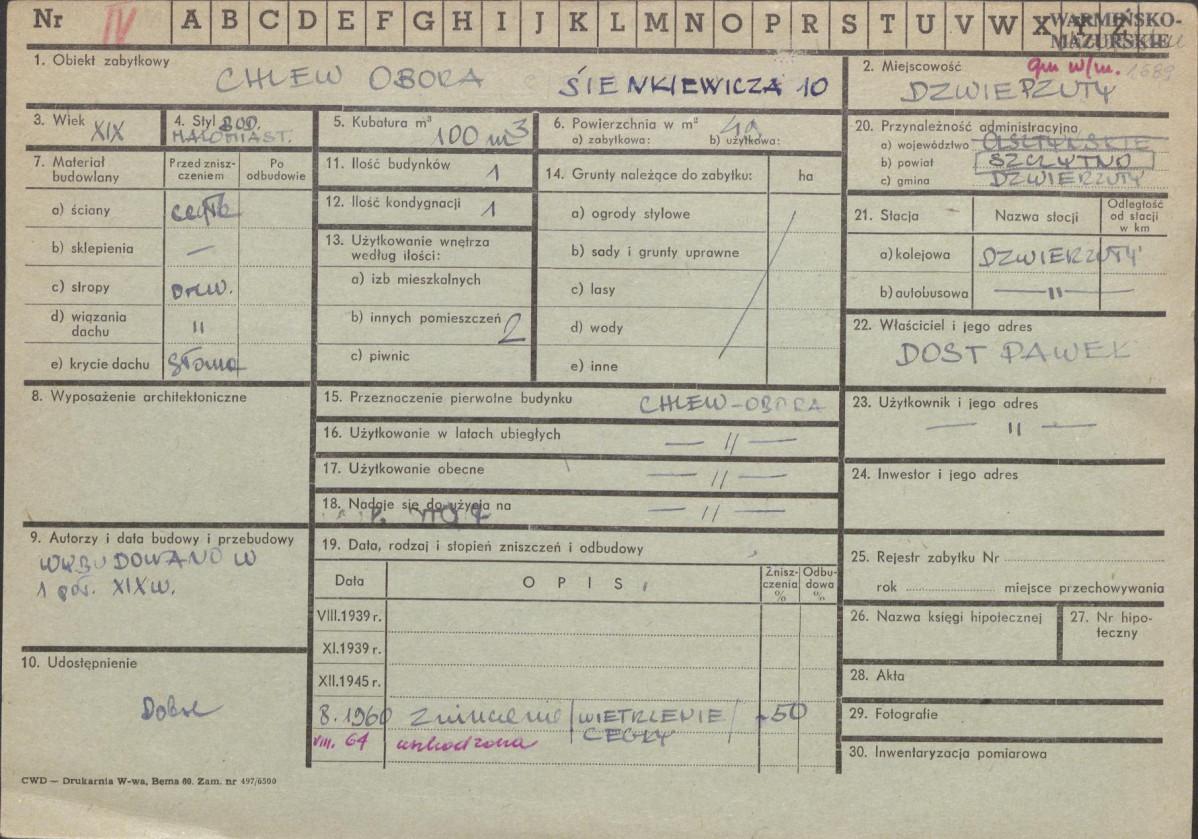 Nr IV A B C D E F G H I J K L M N O P R S T U V W X Y Z WARMIŃSKO-
MAZURSKIE
1. Obiekt zabytkowy
CHLEW OBORA SIENKIEWICZA 10
2. Miejscowość gm w/m. 1689
DZWIERZUTY
3. Wiek XIX
4. Styl BUD.
MAŁOMIAST.
5. Kubatura m³
100 m³
6. Powierzchnia w m²
a) zabytkowa: b) użytkowa:
20. Przynależność administracyjna
a) województwo OLSZTYŃSKIE
b) powiat SZCZYTNO
c) gmina DZWIERZUTY
7. Materiał budowlany
Przed znisz-
czeniem
Po
odbudowie
a) ściany cegła
b) sklepienia —
c) stropy drew.
d) wiązania
dachu "
e) krycie dachu słoma
11. Ilość budynków 1
12. Ilość kondygnacji 1
13. Użytkowanie wnętrza
według ilości:
a) izb mieszkalnych
b) innych pomieszczeń 2
c) piwnic
14. Grunty należące do zabytku: ha
a) ogrody stylowe
b) sady i grunty uprawne
c) lasy
d) wody
e) inne
21. Stacja
Nazwa stacji
Odległość
od stacji
w km
a) kolejowa DZWIERZUTY
b) autobusowa — " —
22. Właściciel i jego adres
DOST PAWEŁ
8. Wyposażenie architektoniczne
15. Przeznaczenie pierwotne budynku CHLEW-OBORA
16. Użytkowanie w latach ubiegłych — " —
17. Użytkowanie obecne — " —
18. Nadaje się do użycia na — " —
23. Użytkownik i jego adres
— " —
24. Inwestor i jego adres
9. Autorzy i data budowy i przebudowy
WYBUDOWANO W
1 poł. XIX w.
19. Data, rodzaj i stopień zniszczeń i odbudowy
Data
OPIS
Znisz-
czenia
%
Odbu-
dowa
%
VIII.1939 r.
XI.1939 r.
XII.1945 r.
8. 1960 zniszczenie /WIETRZENIE / ~50
CEGŁY
VIII. 64 uszkodzona
25. Rejestr zabytku Nr
rok miejsce przechowywania
26. Nazwa księgi hipotecznej
27. Nr hipo-
teczny
10. Udostępnienie
Dobre
28. Akta
29. Fotografie
30. Inwentaryzacja pomiarowa
CWD — Drukarnia W-wa, Bema 60. Zam. nr 497/6500